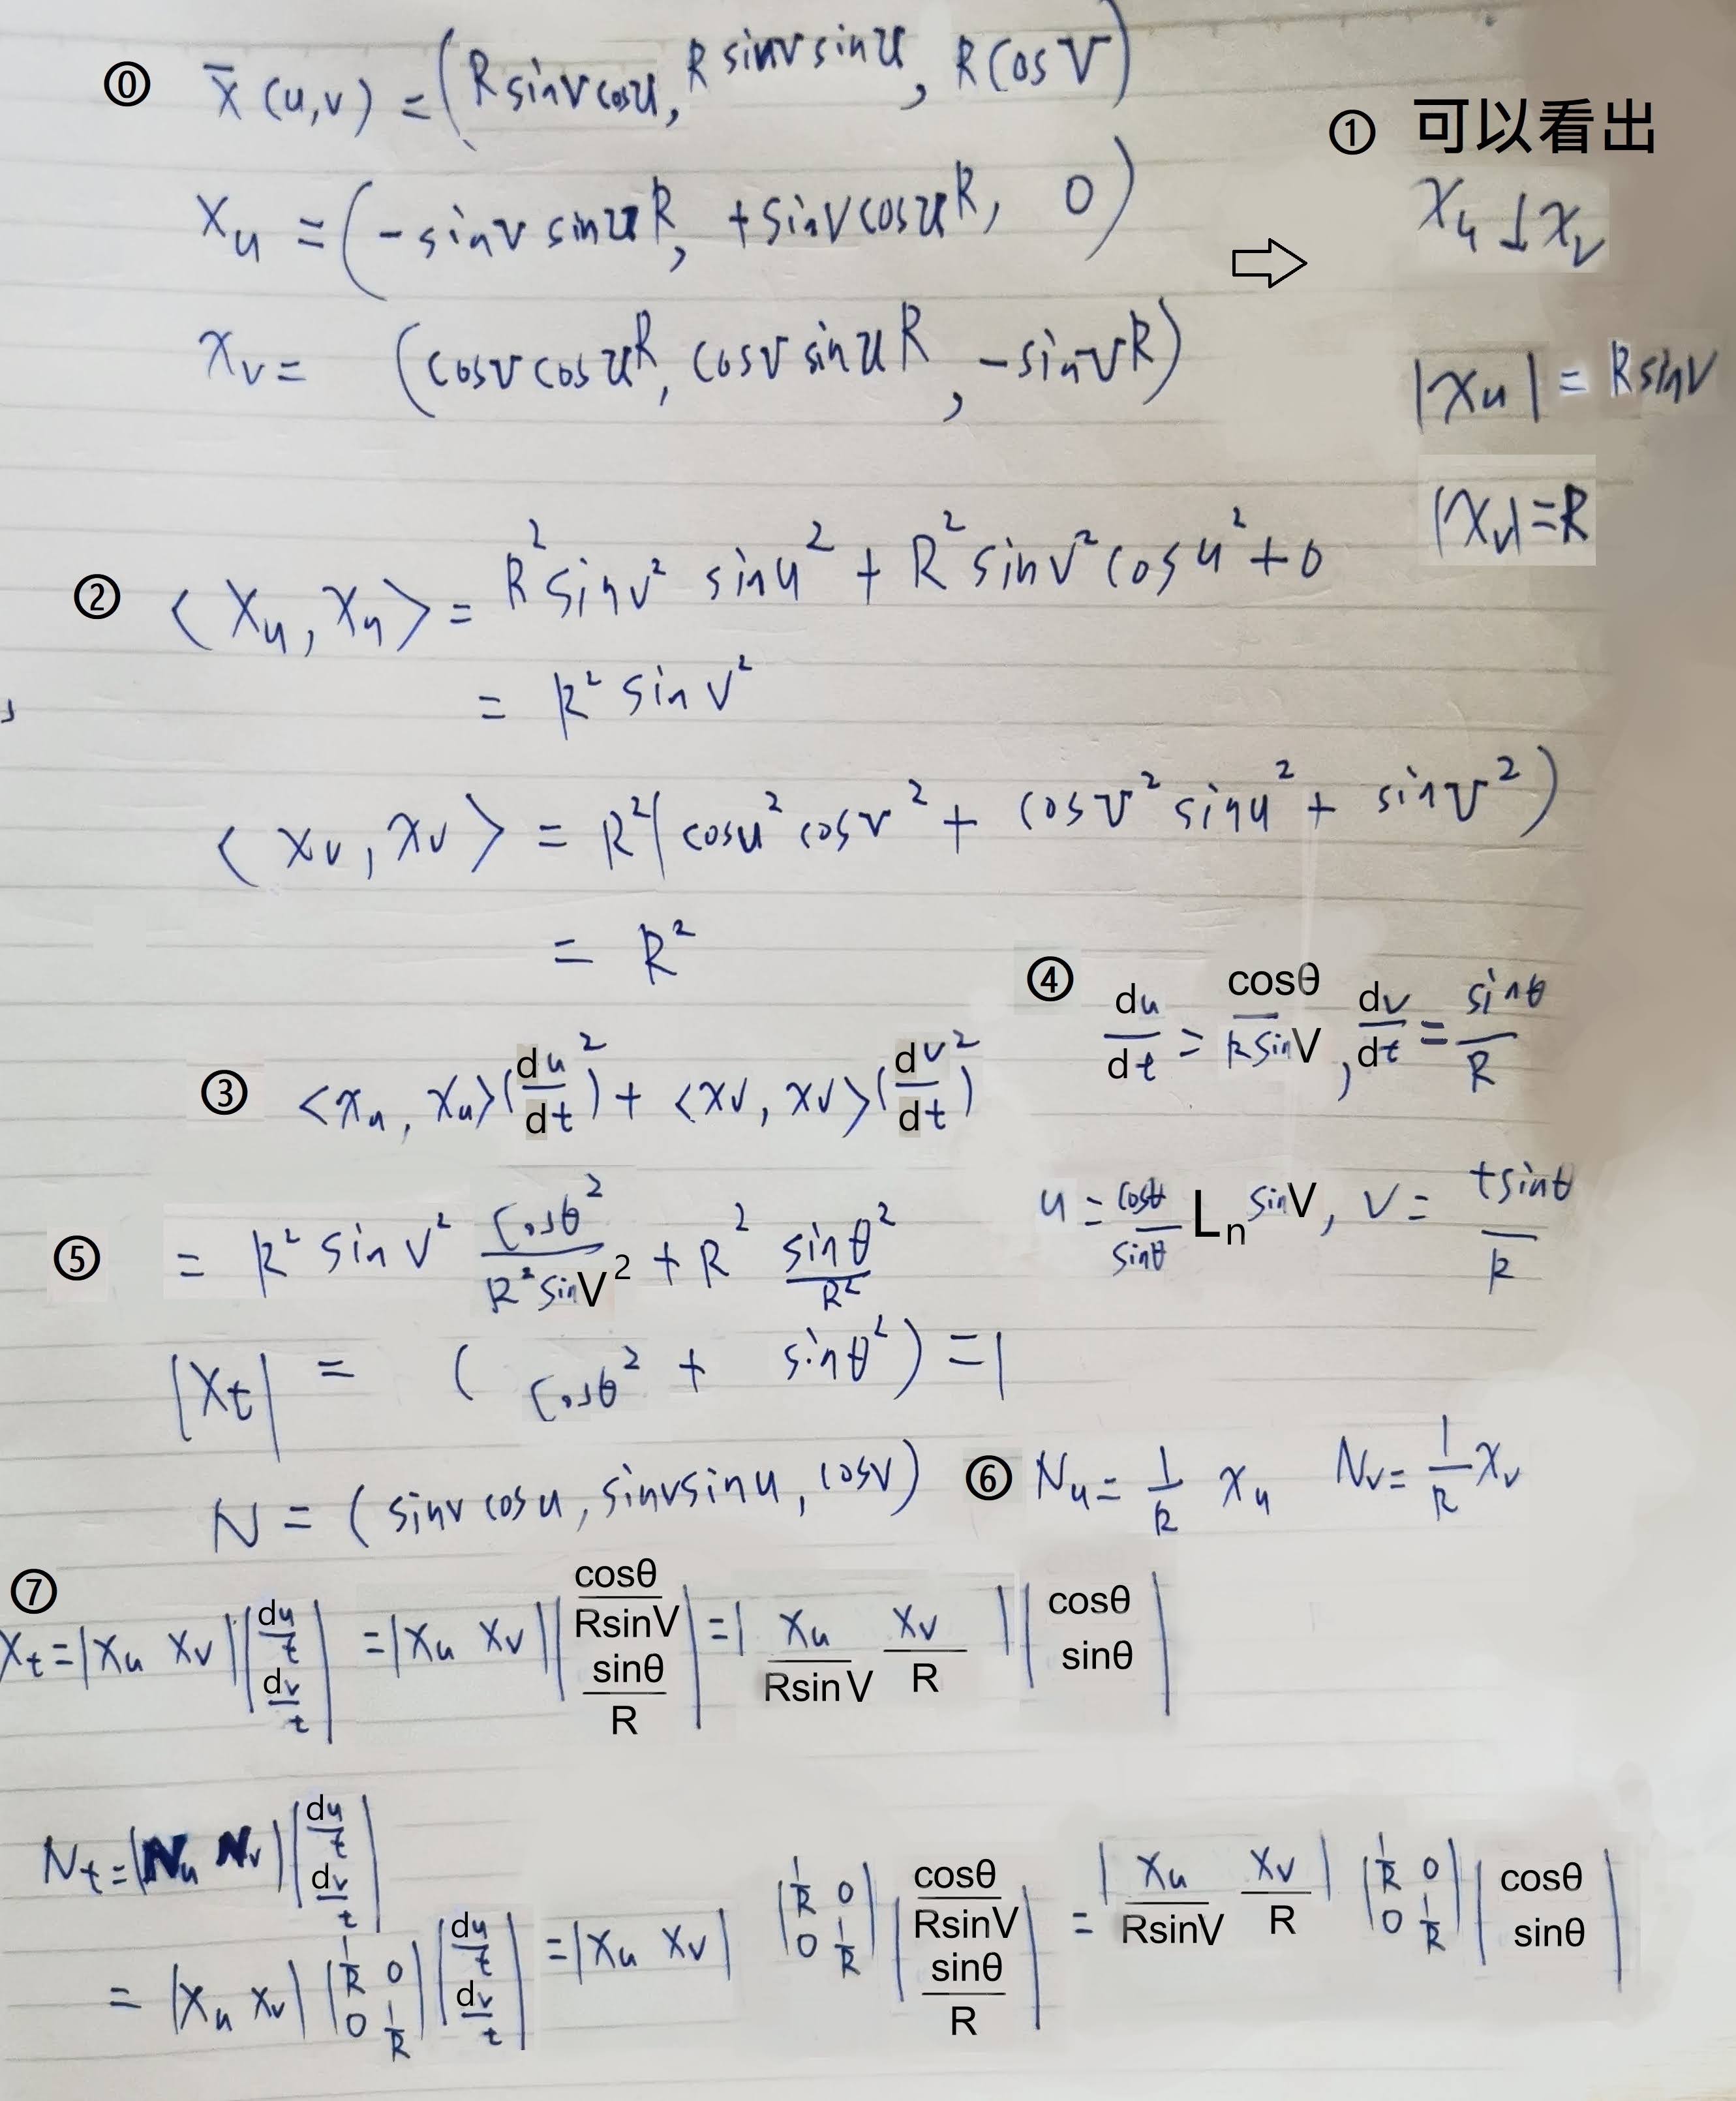 ⓪ x̄ (u,v) = (R sinv cosu, R sinv sinu, R cos V)
x_u = (-sinv sinu R, +sinv cosu R, 0)
x_v = (cosv cosu R, cosv sinu R, -sinv R)
⇨
① 可以看出
x_u ⊥ x_v
|x_u| = R sinV
|x_v| = R
② ⟨x_u, x_u⟩ = R² sinv² sinu² + R² sinv² cosu² + 0
= R² sin v²
⟨x_v, x_v⟩ = R²(cosu² cosv² + cosv² sinu² + sinv²)
= R²
③ ⟨x_u, x_u⟩(du/dt)² + ⟨xv, xv⟩(dv/dt)²
④ du/dt = cosθ/RsinV, dv/dt = sinθ/R
u = cosθ/sinθ Ln sinV, v = tsinθ/R
⑤ = R² sin v² cosθ²/R²sinV² + R² sinθ²/R²
|x_t| = (cosθ² + sinθ²) = 1
N = (sinv cosu, sinvsinu, cosv)
⑥ N_u = 1/R x_u N_v = 1/R x_v
⑦
x_t = |x_u x_v| |du/t dv/t| = |x_u x_v| |cosθ/RsinV sinθ/R| = |x_u/RsinV x_v/R| |cosθ sinθ|
N_t = |N_u N_v| |du/t dv/t|
= |x_u x_v| |1/R 0 0 1/R| |du/t dv/t| = |x_u x_v| |1/R 0 0 1/R| |cosθ/RsinV sinθ/R| = |x_u/RsinV x_v/R| |1/R 0 0 1/R| |cosθ sinθ|